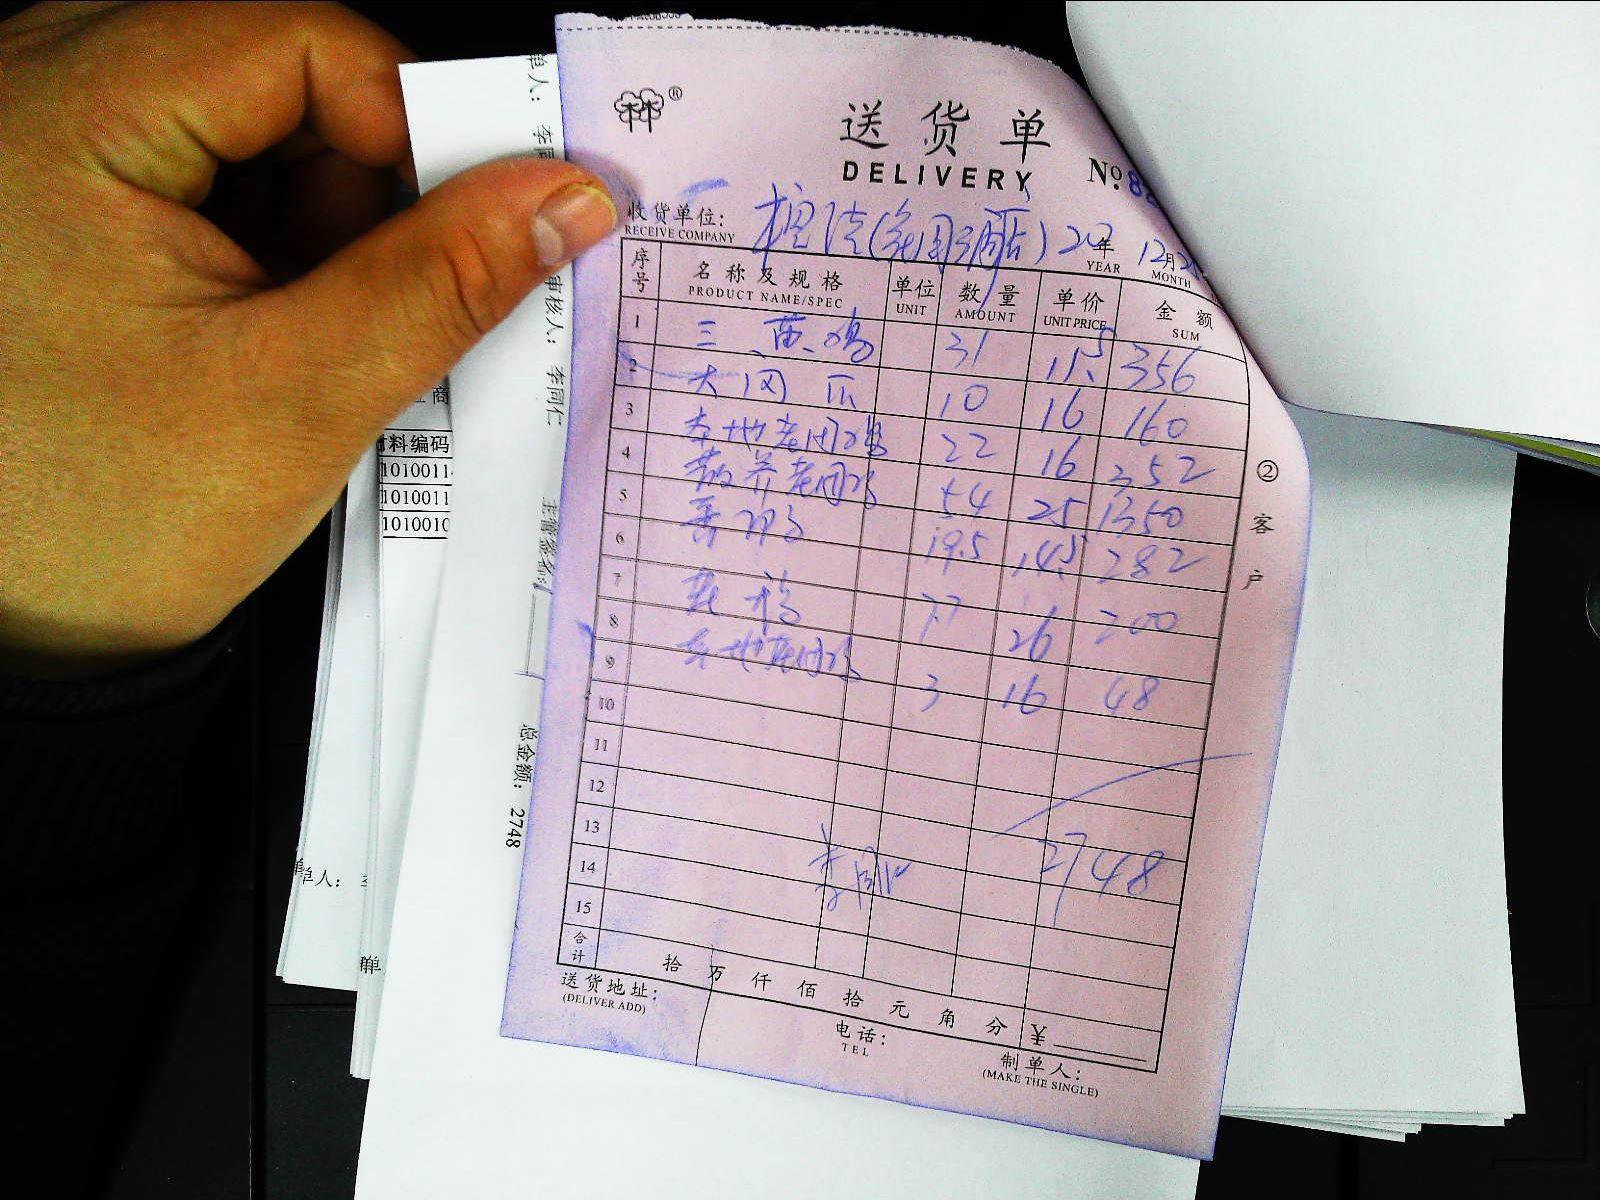 送货单
DELIVERY
№ 82
收货单位:
RECEIVE COMPANY
年 12月
YEAR MONTH
序号 名称及规格 单位 数量 单价 金额
PRODUCT NAME/SPEC UNIT AMOUNT UNIT PRICE SUM
1 三黄鸡 31 11.5 356
2 10 16 160
3 本地老用鸡 22 16 352
4 散养老用鸡 54 25 1350
5 19.5 14.5 282
6
7 7.7 26 200
8 本地老用鸡 3 16 48
9
10
11
12
13 2748
14
15
合计 拾万仟佰拾元角分 ¥
送货地址:
(DELIVER ADD)
电话:
TEL
制单人:
(MAKE THE SINGLE)
②客户
单人: 李同
审核人: 李同仁
主管签名:
总金额: 2748
商
材料编码
1010011
1010011
1010010
单人:
单